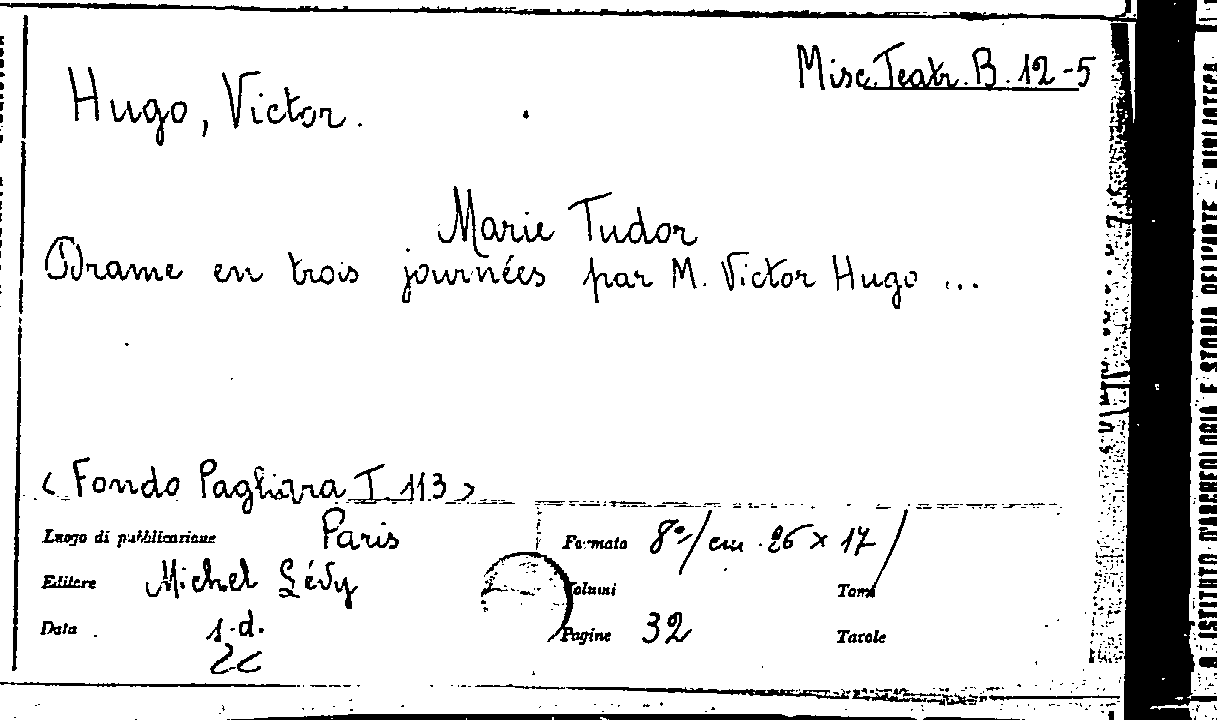 Misc. Teatr. B. 12-5
Hugo, Victor.
Marie Tudor
Drame en trois journées par M. Victor Hugo ...
< Fondo Pagliara I 113 >
Luogo di pubblicazione Paris
Formato 8º/cm. 26 x 17/
Editore Michel Lévy
Volumi
Tomi
Data s.d.
Pagine 32
Tavole
ISTITUTO D'ARCHEOLOGIA E STORIA DELL'ARTE - BIBLIOTECA